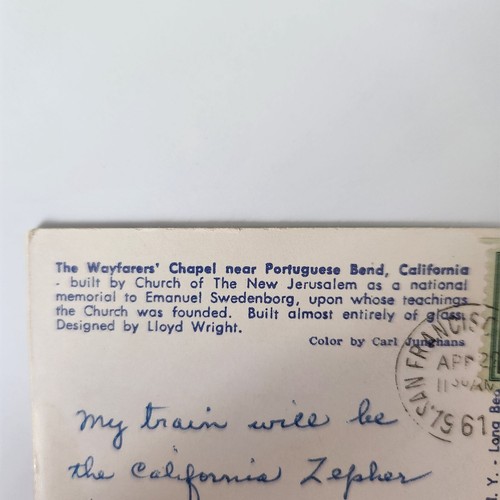 The Wayfarers' Chapel near Portuguese Bend, California
- built by Church of The New Jerusalem as a national
memorial to Emanuel Swedenborg, upon whose teachings
the Church was founded. Built almost entirely of glass.
Designed by Lloyd Wright.
Color by Carl Junghans
SAN FRANCISC
APR 2
11 30 AM
1961
My train will be
the California Zepher
Y. - Long Bea